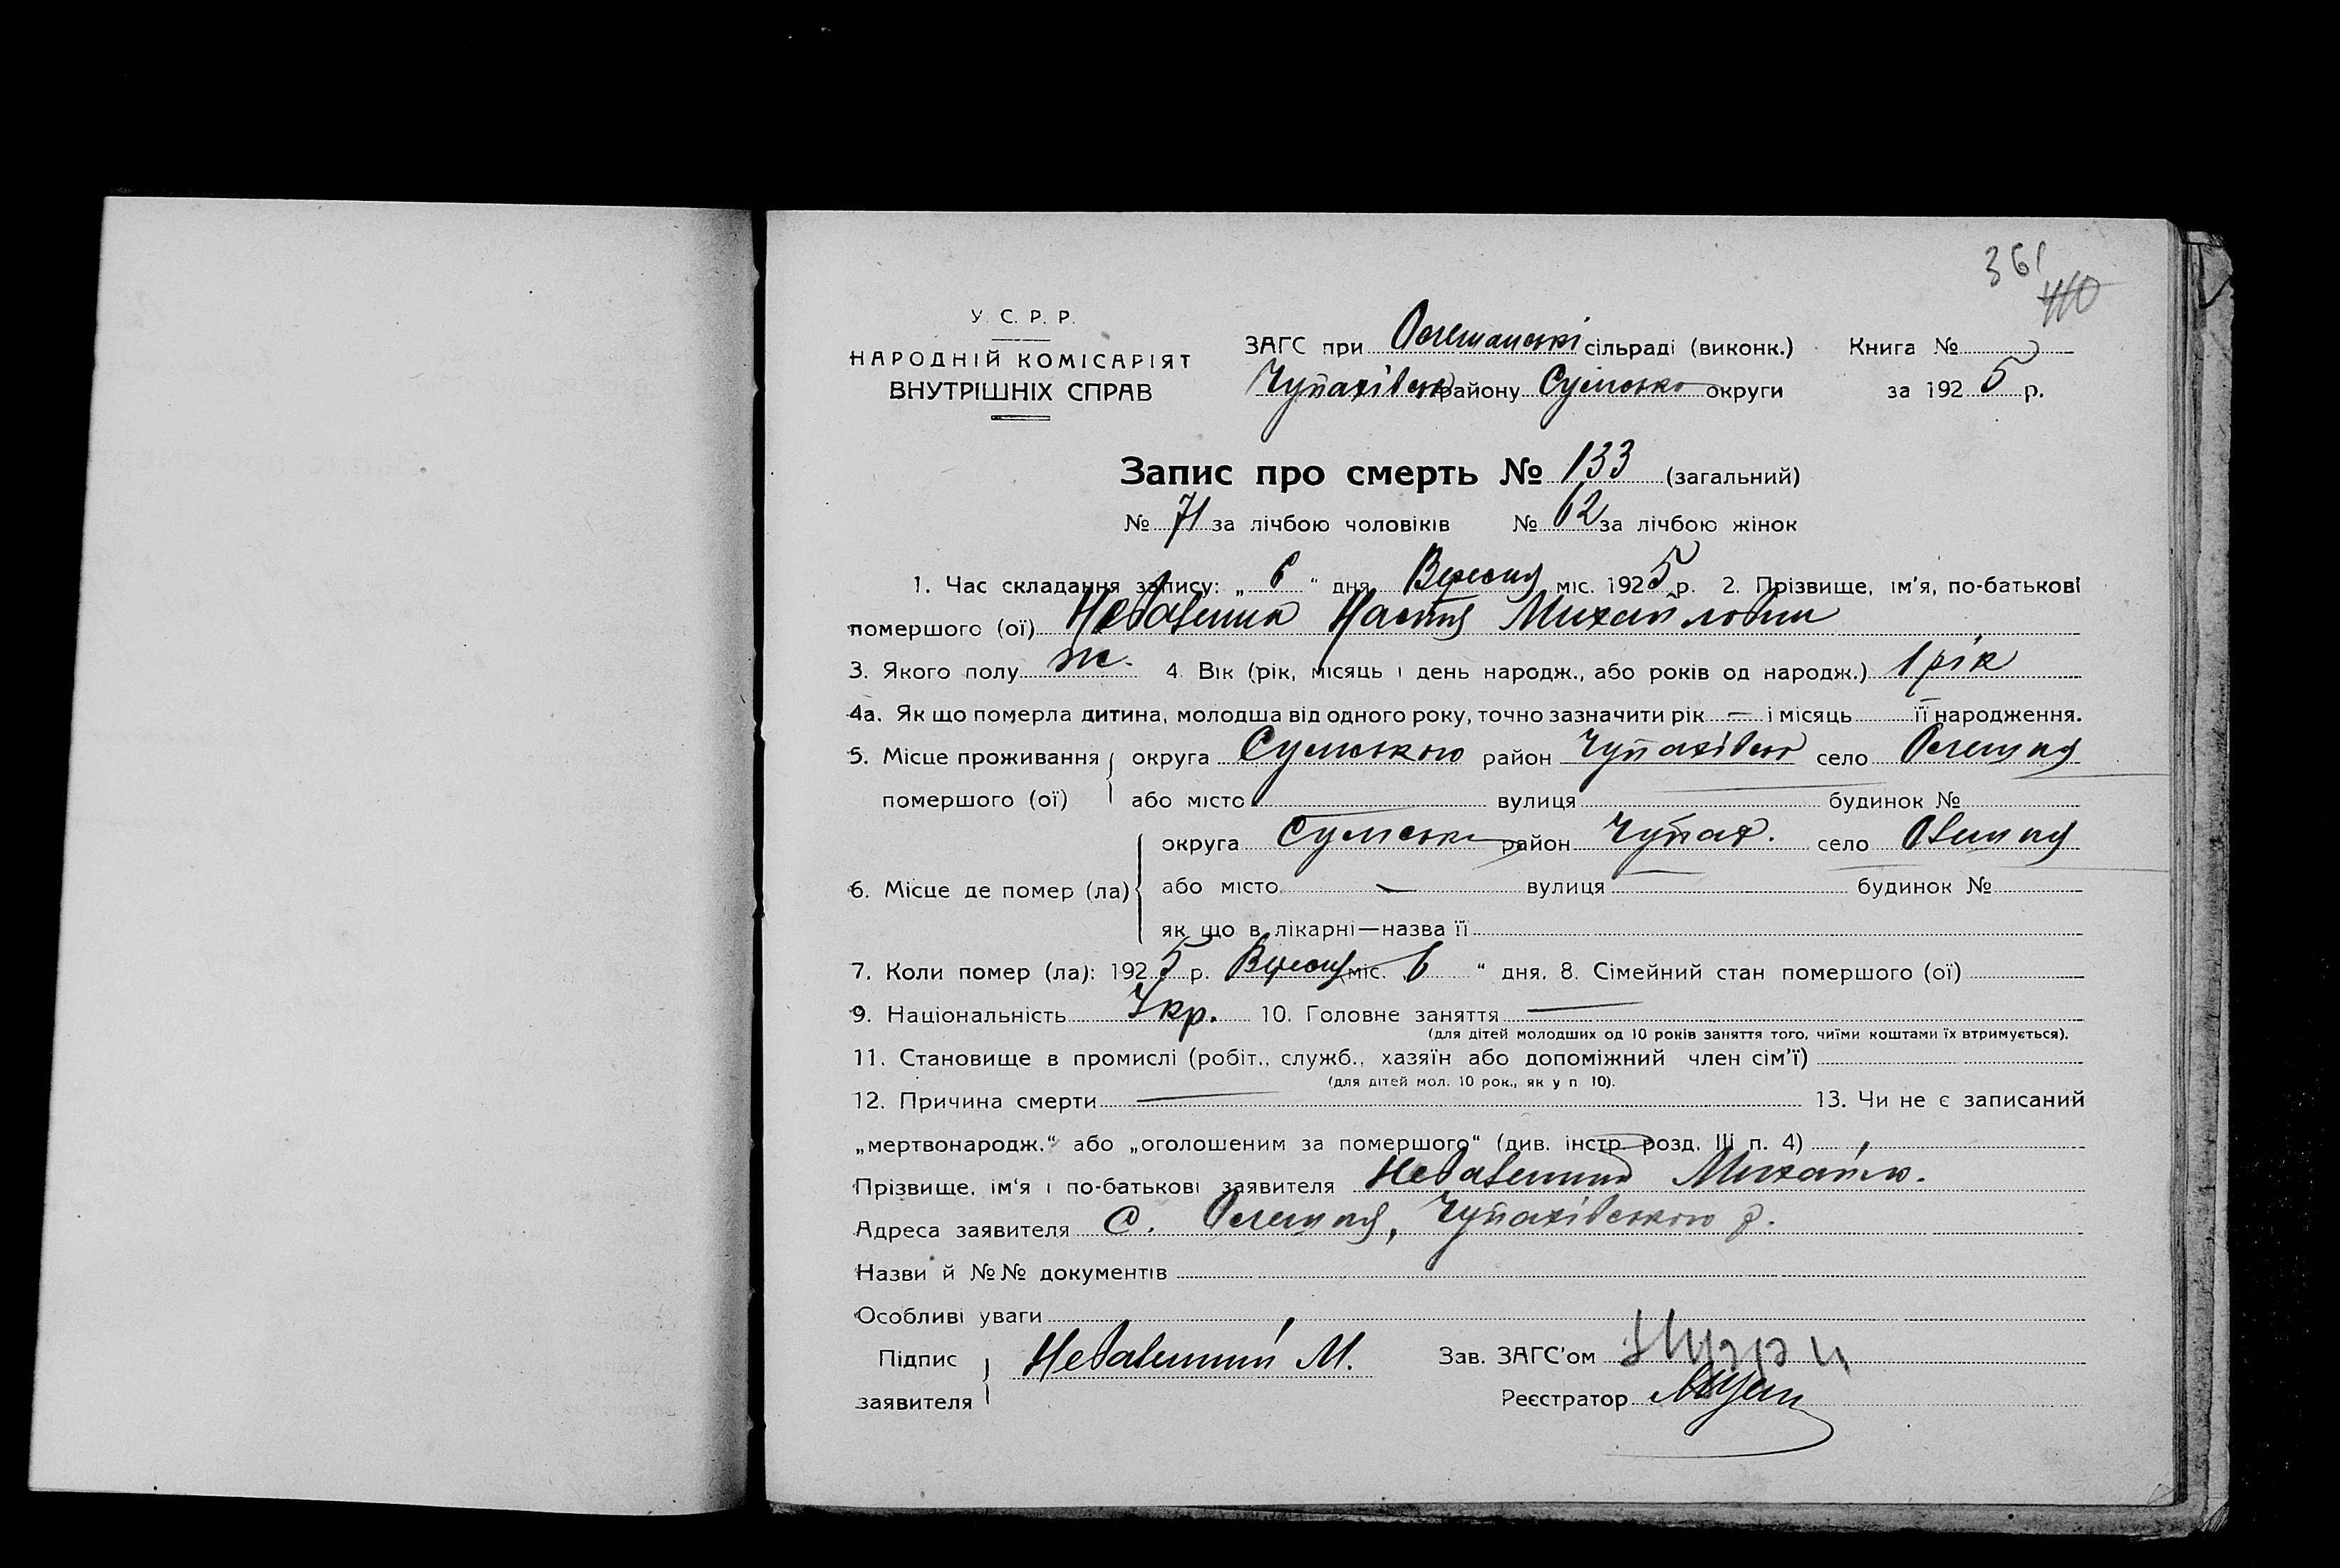 361
410
У. С. Р. Р.
НАРОДНІЙ КОМІСАРІЯТ
ВНУТРІШНІХ СПРАВ
ЗАГС при Олешанські сільраді (виконк.) Книга №
Чупахівськ району Сумсько округи за 1925 р.
Запис про смерть № 133 (загальний)
№ 71 за лічбою чоловіків № 62 за лічбою жінок
1. Час складання запису: „ 6 “ дня Вересня міс. 1925 р. 2. Прізвище, ім’я, по-батькові
помершого (ої) Настя Михайловни
3. Якого полу ж. 4. Вік (рік, місяць і день народж., або років од народж.) 1 рік
4а. Як що померла дитина, молодша від одного року, точно зазначити рік — і місяць її народження.
5. Місце проживання округа Сумською район Чупахівськ село Олешня
помершого (ої) або місто вулиця будинок №
округа Сумськ район Чупах. село Олешня
6. Місце де помер (ла) або місто — вулиця будинок №
як що в лікарні—назва її
7. Коли помер (ла): 1925 р. Вересня міс. 6 “ дня. 8. Сімейний стан помершого (ої)
9. Національність Укр. 10. Головне заняття —
(для дітей молодших од 10 років заняття того, чиїми коштами їх втримується).
11. Становище в промислі (робіт., служб., хазяїн або допоміжний член сім’ї)
(для дітей мол. 10 рок., як у п 10).
12. Причина смерти — 13. Чи не є записаний
„мертвонародж.“ або „оголошеним за помершого“ (див. інстр. розд. III п. 4)
Прізвище, ім‘я і по-батькові заявителя Михайло.
Адреса заявителя с. Олешня, Чупахівською р.
Назви й №№ документів
Особливі уваги
Підпис М. Зав. ЗАГС’ом
заявителя Реєстратор